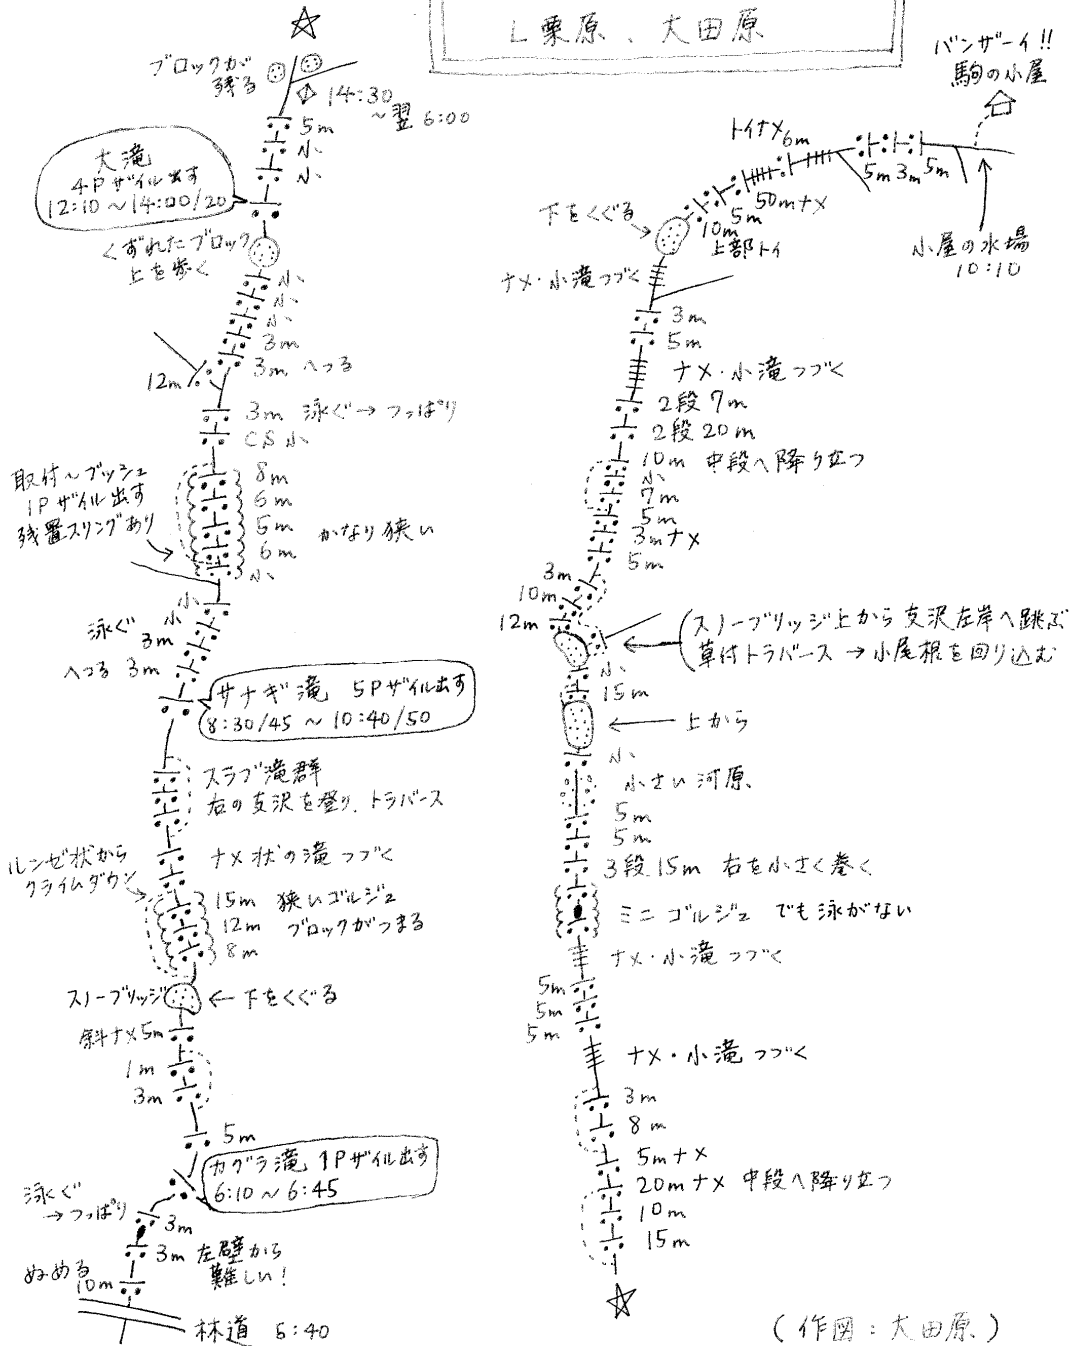 L栗原、大田原
ブロックが
残る
14:30
～翌 6:00
5m
小
小
大滝
4Pザイル出す
12:10～14:00/20
くずれたブロック
上を歩く
小
小
小
3m
3m へつる
12m
3m 泳ぐ→つっぱり
CS小
取付～ブッシュ
1Pザイル出す
残置スリングあり
8m
6m
5m
6m
小
かなり狭い
小
小
泳ぐ 3m
へつる 3m
サナギ滝 5Pザイル出す
8:30/45～10:40/50
スラブ滝群
右の支沢を登り、トラバース
ナメ状の滝つづく
ルンゼ状から
クライムダウン
15m 狭いゴルジュ
12m ブロックがつまる
8m
スノーブリッジ ← 下をくぐる
斜ナメ5m
1m
3m
5m
カグラ滝 1Pザイル出す
6:10～6:45
泳ぐ
→つっぱり
3m
3m 左壁から
難しい!
ぬめる
10m
林道 5:40
バンザーイ!!
駒の小屋
小屋の水場
10:10
5m 3m 5m
トイナメ 6m
50mナメ
5m
10m
上部トイ
下をくぐる
ナメ・小滝つづく
3m
5m
ナメ・小滝つづく
2段 7m
2段 20m
10m 中段へ降り立つ
小
7m
5m
3mナメ
5m
3m
10m
12m
スノーブリッジ上から支沢左岸へ跳ぶ
草付トラバース→小尾根を回り込む
小
15m
← 上から
小
小さい河原
5m
5m
3段 15m 右を小さく巻く
ミニゴルジュ でも泳がない
ナメ・小滝つづく
5m
5m
5m
ナメ・小滝つづく
3m
8m
5mナメ
20mナメ 中段へ降り立つ
10m
15m
(作図:大田原)